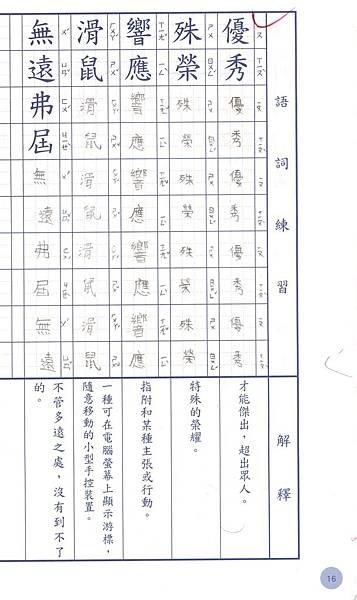 語詞練習
解釋
優秀
優秀
優秀
優秀
優秀
才能傑出，超出眾人。
殊榮
殊榮
殊榮
殊榮
殊榮
特殊的榮耀。
響應
響應
響應
響應
響應
指附和某種主張或行動。
滑鼠
滑鼠
滑鼠
滑鼠
滑鼠
一種可在電腦螢幕上顯示游標，
隨意移動的小型手控裝置。
無遠弗屆
無遠弗屆
無遠
不管多遠之處，沒有到不了
的。
16